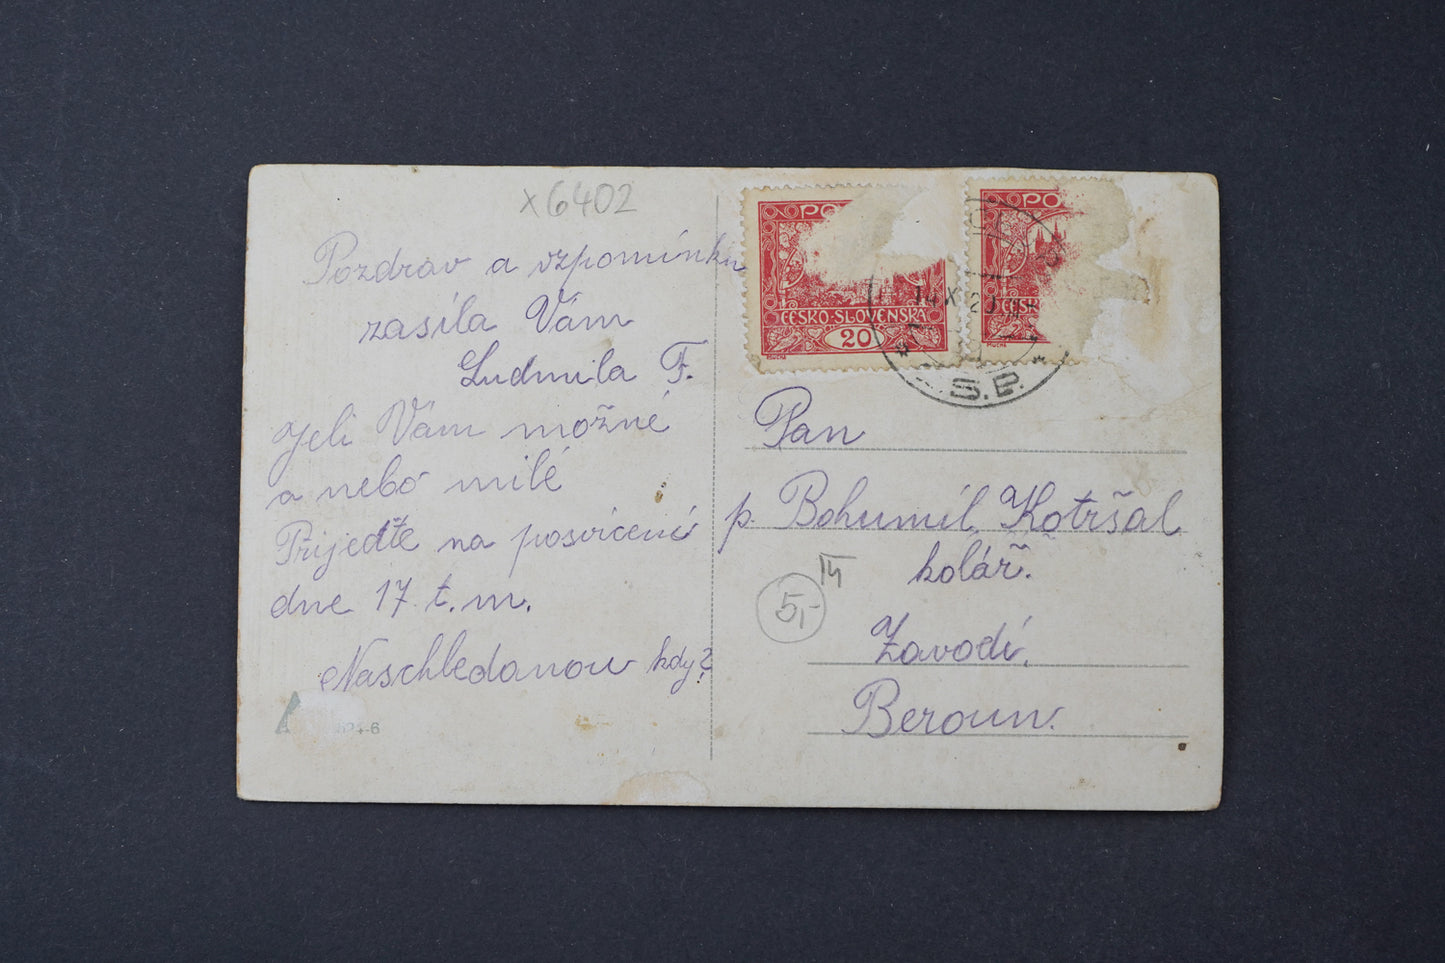 x6402
Pozdrav a vzpomínku
zasíla Vám
Ludmila F.
Jeli Vám možné
a nebo milé
Přijeďte na posvícení
dne 17 t.m.
Naschledanou kdy?
-6
PO
ČESKO-SLOVENSKÁ
20
MUCHA
PO
ČESK
MUCHA
14 X 20
S.P.
Pan
p. Bohumil Kotršal
kolář.
Závodí,
Beroun.
14
5,-